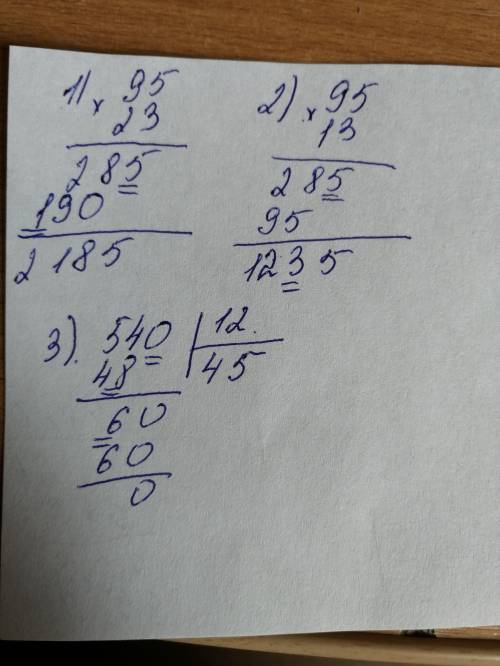 1) × 95
23
285
190
2185
2) × 95
13
285
95
1235
3). 540 | 12.
48 | 45
60
60
0